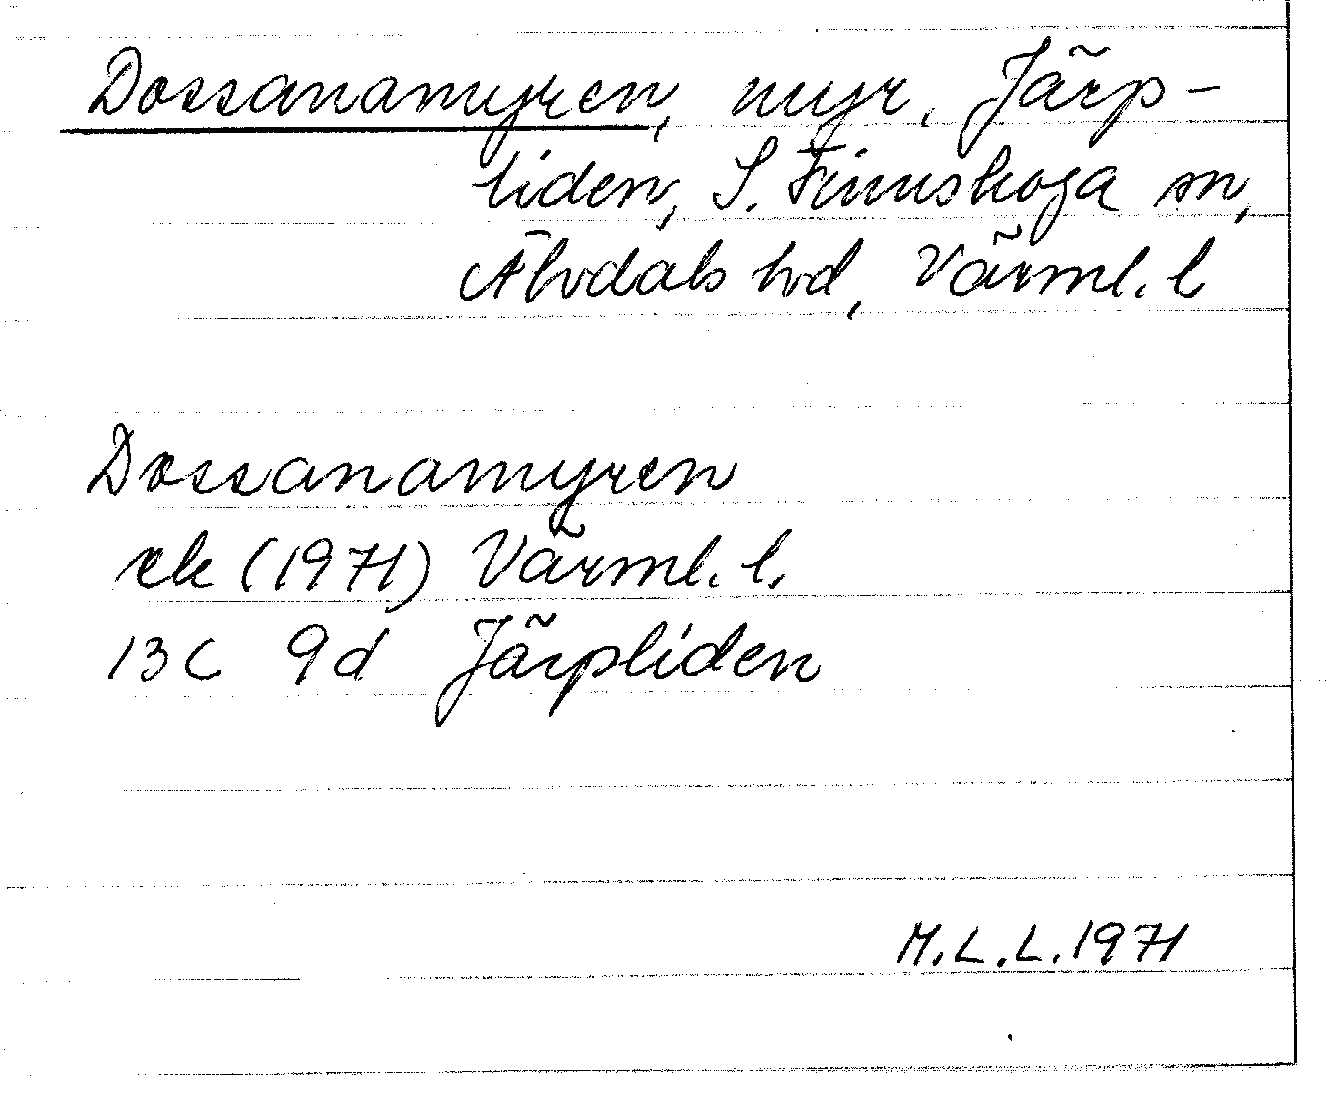 Dossanamyren, myr, Järp-
liden, S. Finnskoga sn,
Älvdals hd, Värml. l
Dossanamyren
ek (1971) Värml. l.
13C 9d Järpliden
M.L.L. 1971